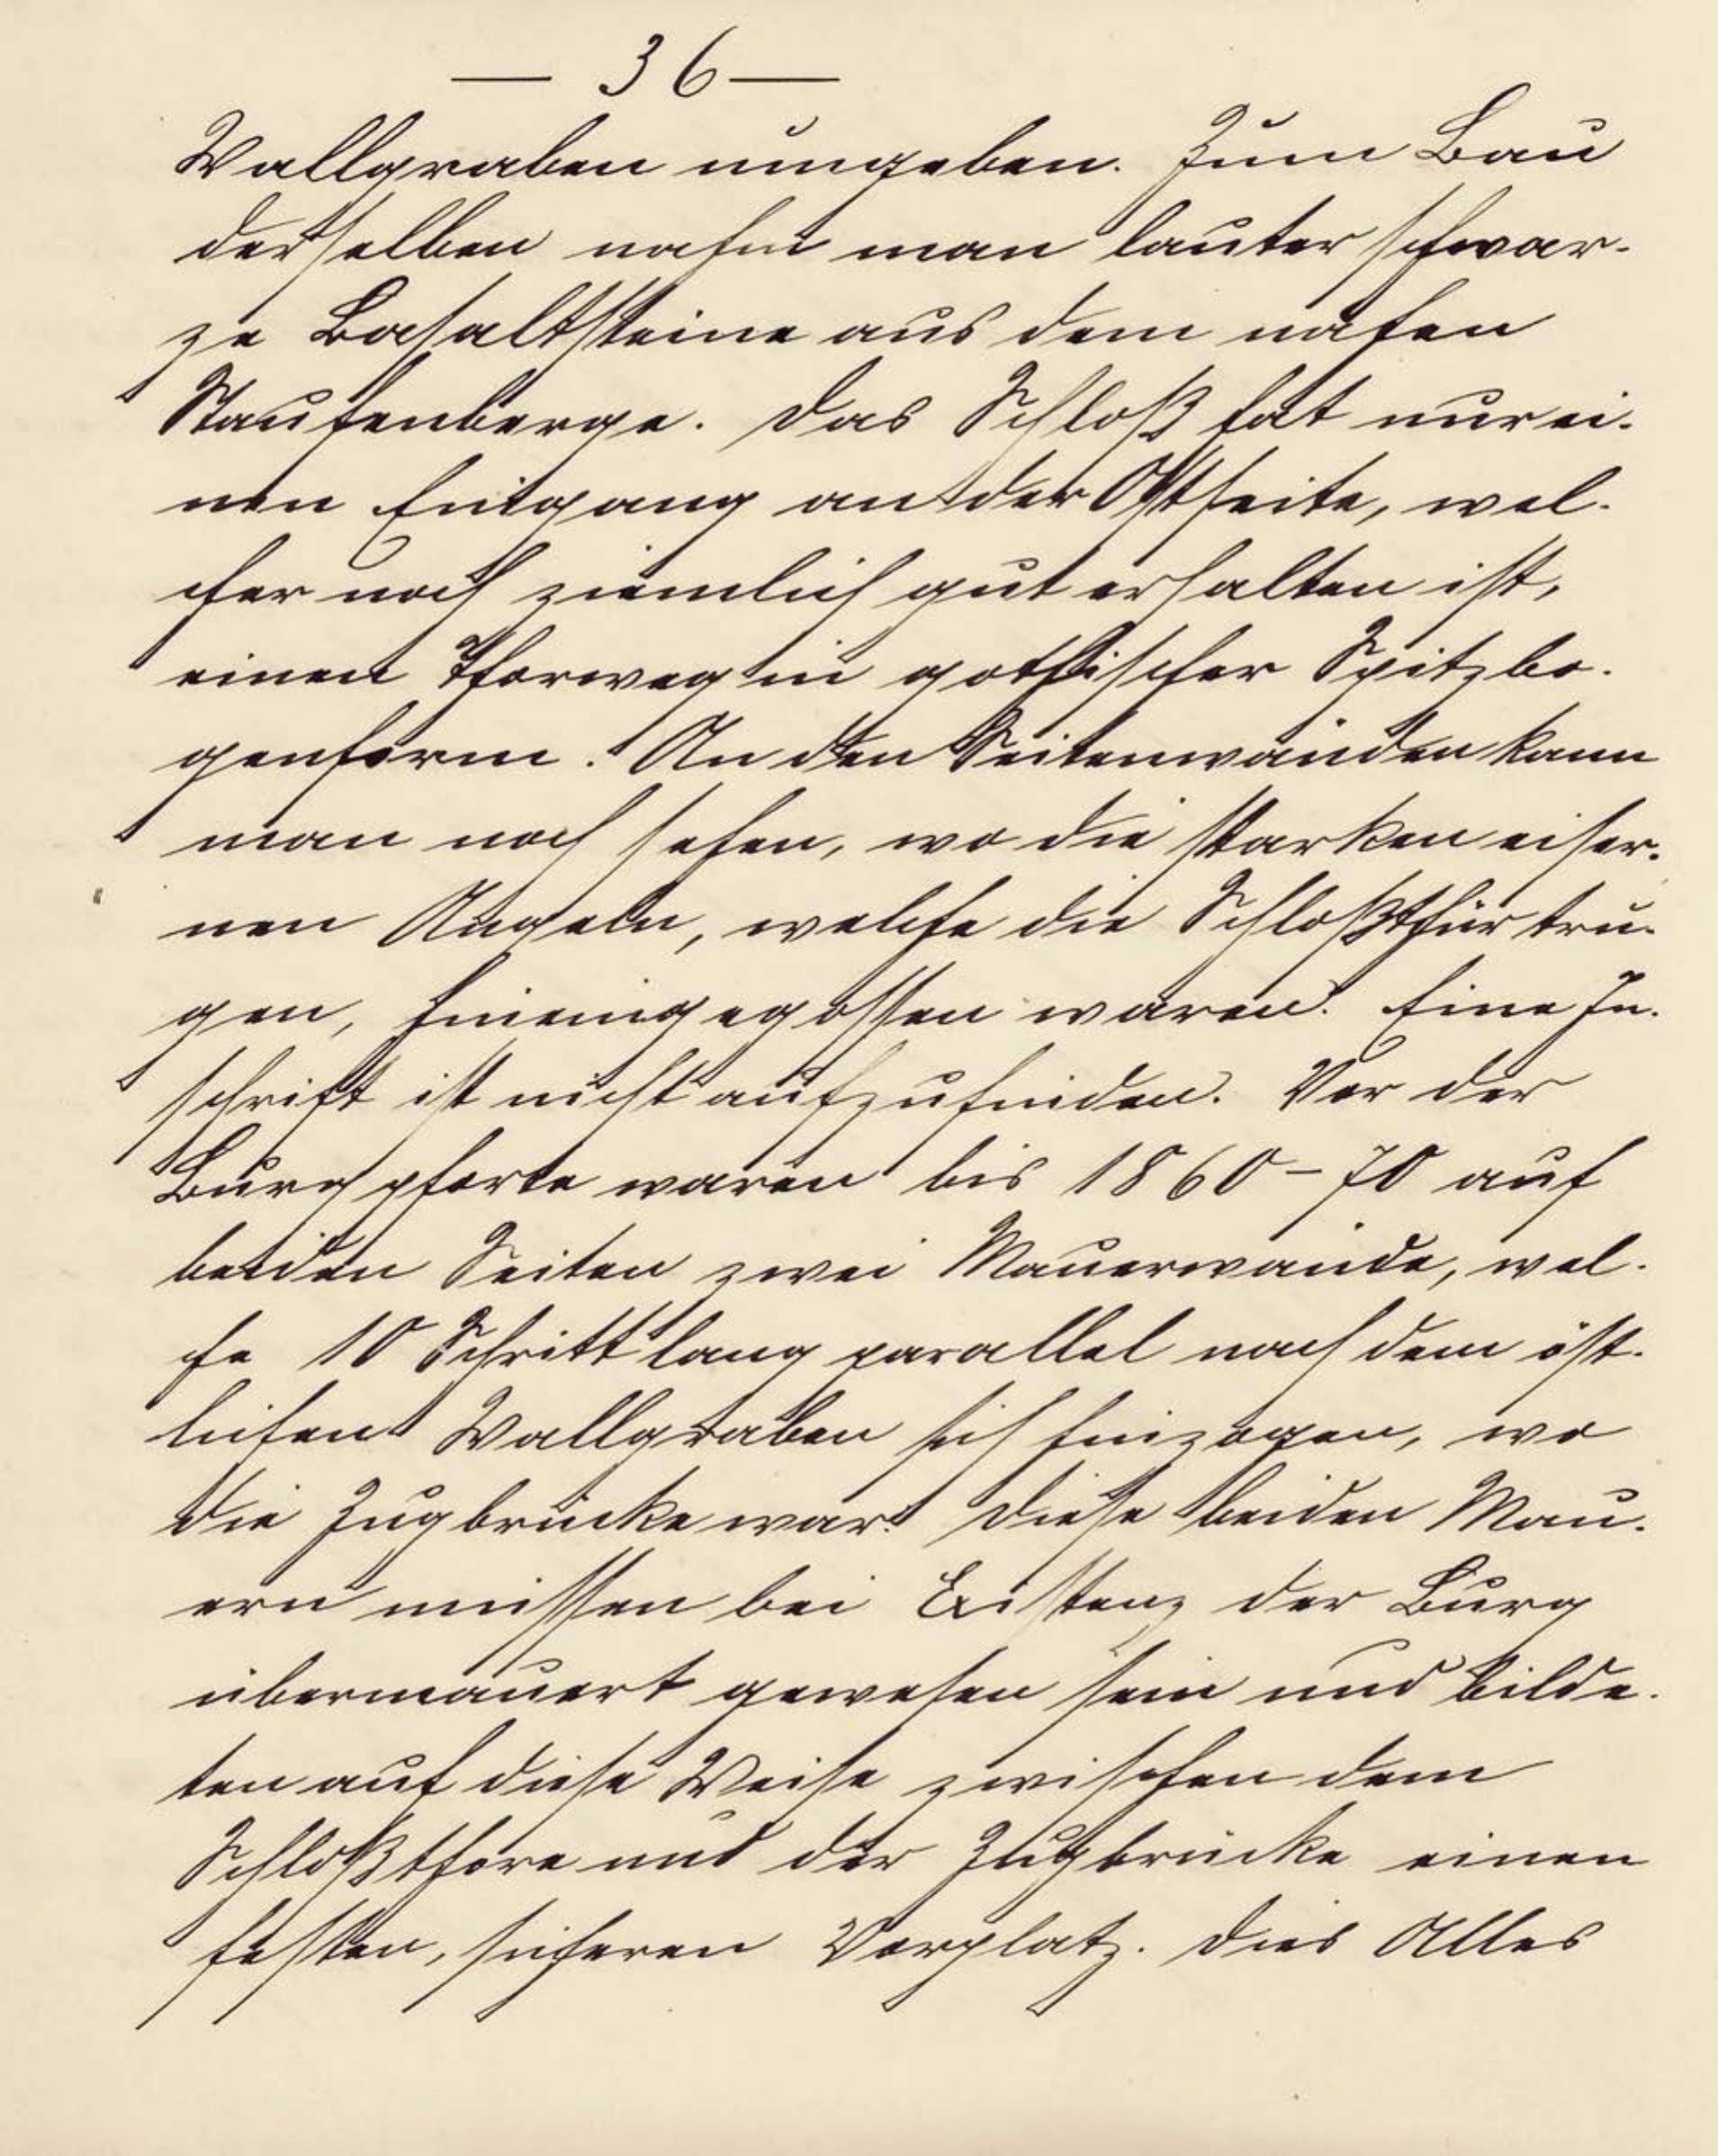 — 36 —
Wallgraben umgeben. Zum Bau
derselben nahm man lauter schwar-
ze Basaltsteine aus dem nahen
Staufenberge. Das Schloß hat nur ei-
nen Eingang an der Ostseite, wel-
cher noch ziemlich gut erhalten ist,
einen Thorweg in gothischer Spitzbo-
genform. An den Seitenwänden kann
man noch sehen, wo die starken eiser-
nen Angeln, welche die Schloßthür tru-
gen, hineingegossen waren. Eine In-
schrift ist nicht aufzufinden. Vor der
Burgpforte waren bis 1860-70 auf
beiden Seiten zwei Mauerwände, wel-
che 10 Schritt lang parallel nach dem öst-
lichen Wallgraben sich hinzogen, wo
die Zugbrücke war. Diese beiden Mau-
ern müssen bei Existenz der Burg
übermauert gewesen sein und bilde-
ten auf diese Weise zwischen dem
Schloßthore und der Zugbrücke einen
festen, sicheren Vorplatz. Dies Alles